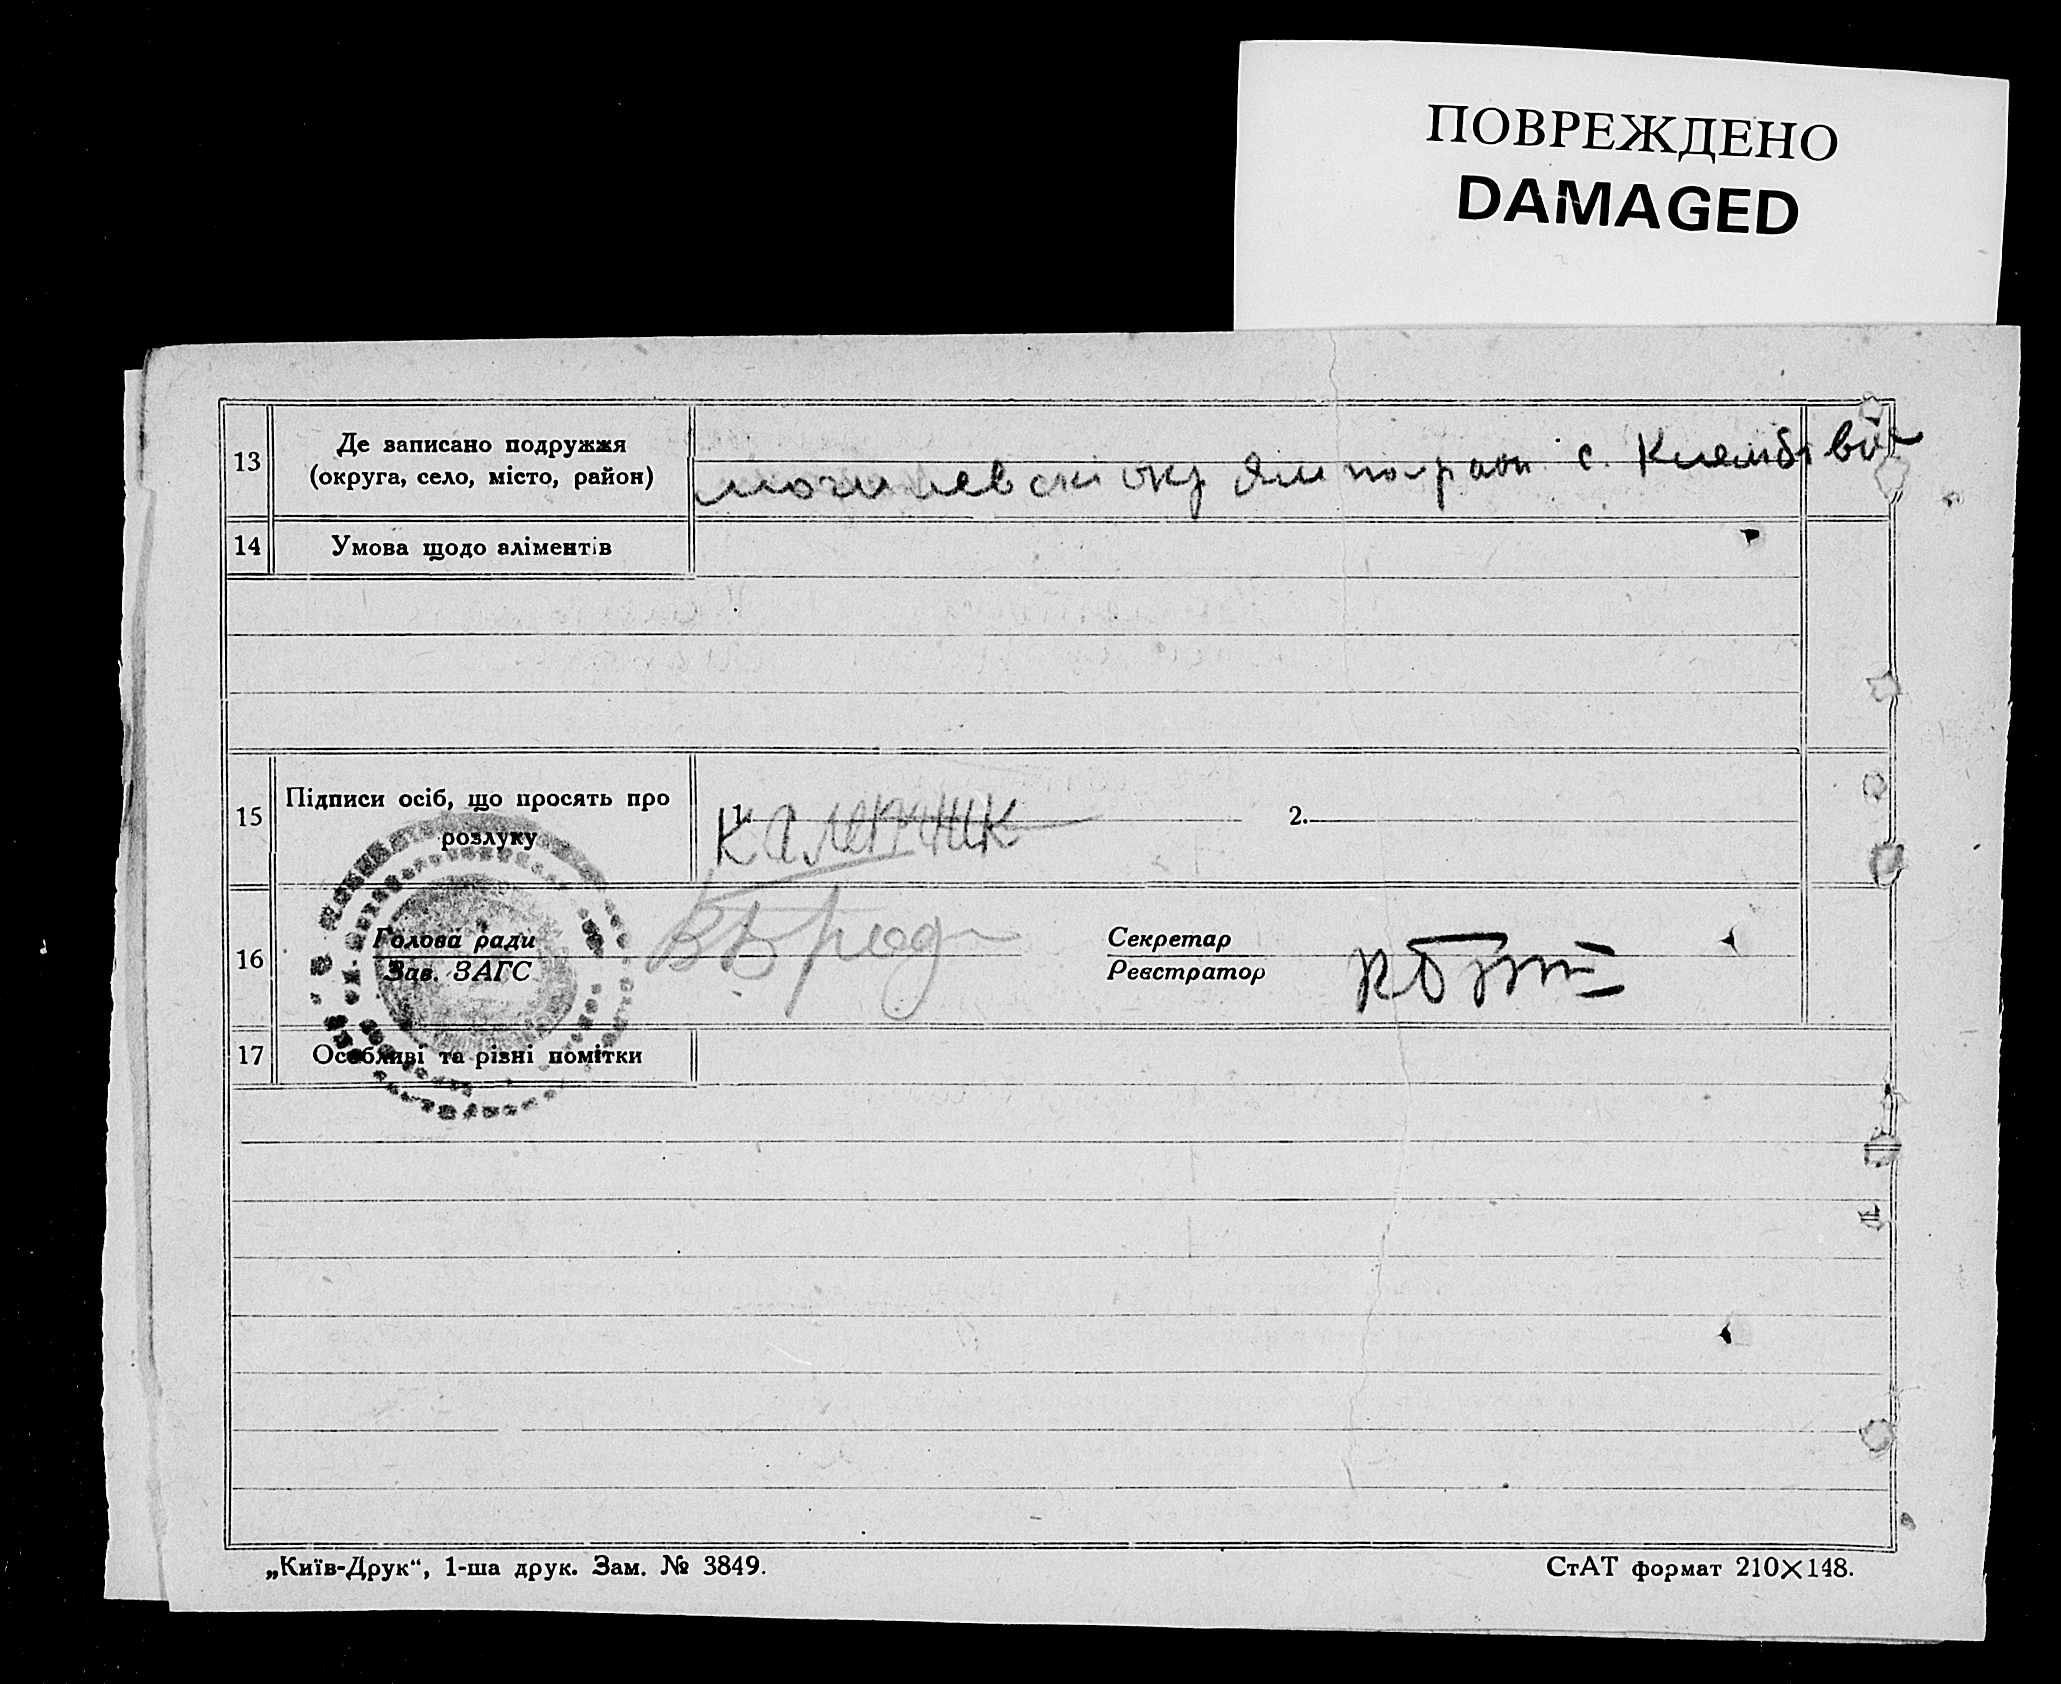 ПОВРЕЖДЕНО
DAMAGED
13 Де записано подружжя
(округа, село, місто, район)
могилевскі окр Ямпол район с. Клембівц
14 Умова щодо аліментів
15 Підписи осіб, що просять про
розлуку
1. Каленчик 2.
16 Голова ради Секретар
Зав. ЗАГС Реєстратор
17 Особливі та різні помітки
„Київ-Друк“, 1-ша друк. Зам. № 3849. СтАТ формат 210×148.